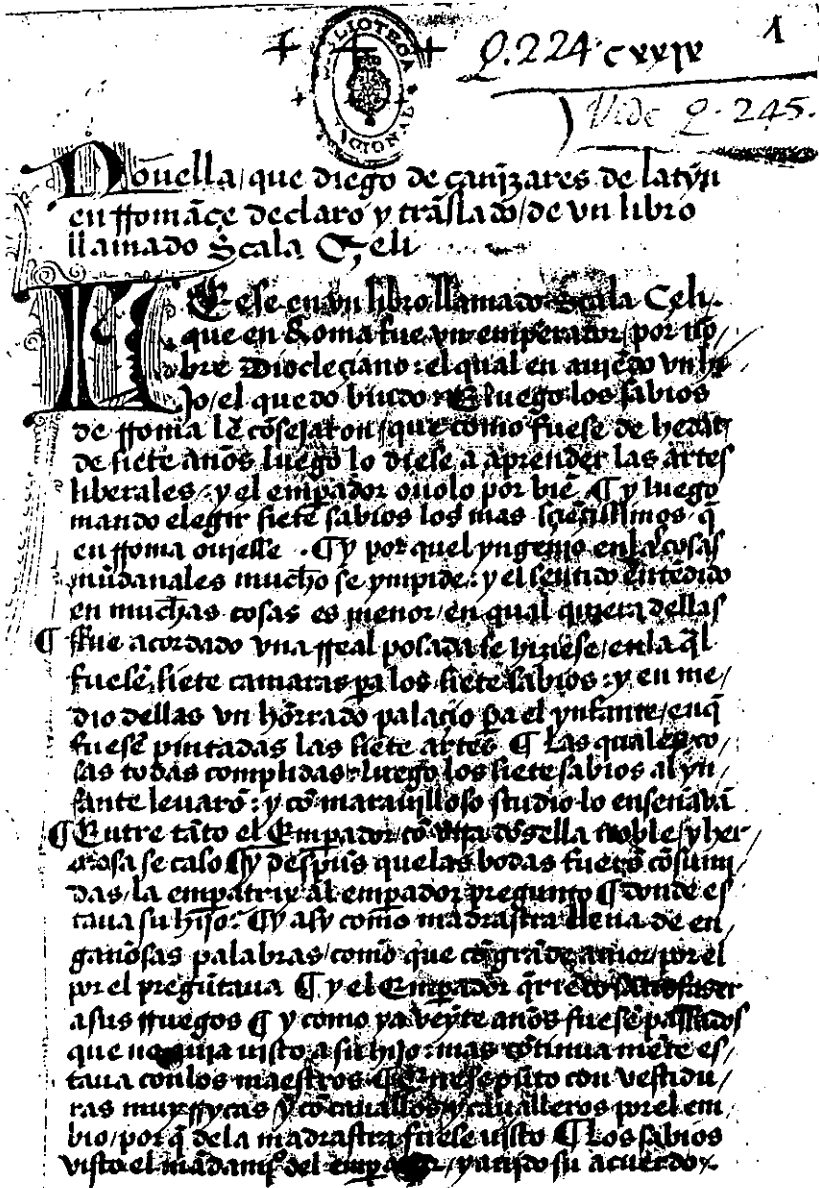 1
Q.224 cxxiv
Vide Q.245.
BIBLIOTECA NACIONAL
Nouella/que diego de cañizares de latyn
en rromãçe declaro y trãslado/de vn libro
llamado Scala Çeli
LEese en vn libro llamado Scala Celi.
que en Roma fue vn emperador/por nõ/
bre Diocleçiano: el qual en auiẽdo vn hi
jo/el quedo biudo: E luego los sabios
de rroma lẽ cõsejaron/que como fuese de hedat
de siete años luego lo diese a aprender las artes
liberales: y el empador ouolo por biẽ ¶ y luego
mando elegir siete sabios los mas sçiẽtissimos q̃
en rroma ouiesse. ¶ y por quel yngenio en las cosas
mũdanales mucho se ympide: y el sentido entẽdido
en muchas cosas es menor/en qual quiera dellas
¶ ffue acordado vna rreal posada se hiziese/en la q̃l
fuesẽ siete camaras pa los siete sabios: y en me/
dio dellas vn hõrrado palaçio pa el ynfante/en q̃
fuesẽ pintadas las siete artes ¶ Las quales co/
sas todas complidas: luego los siete sabios al yn/
fante leuarõ: y cõ marauilloso studio lo enseñauã
¶ Entre tãto el Empador cõ vna dõsella noble/y her/
mosa se caso ¶ y despũs que las bodas fuerõ cõsumi/
das/la empatrix al empador pregunto ¶ donde es/
taua su hijo: ¶ y asy como madrastra llena de en/
gañosas palabras/como que cõ grãde amor/por el
por el pregũtaua ¶ y el Empador q̃rrẽdo satisfaser
a sus rruegos ¶ y como ya veynte años fuesẽ passados
que no auia visto a su hijo: mas cõtinua mẽte es/
taua con los maestros ¶ En ese pũto con vestidu/
ras muy rrycas y cõ cauallos y caualleros por el em/
bio/por q̃ de la madrastra fuese visto ¶ Los sabios
visto el mãdamiº del empador/y auido su acuerdo